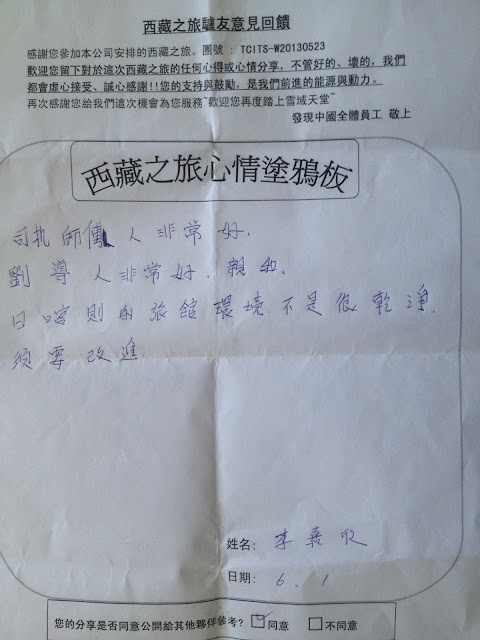 西藏之旅驢友意見回饋
感謝您參加本公司安排的西藏之旅。團號：TCITS-W20130523
歡迎您留下對於這次西藏之旅的任何心得或心情分享，不管好的、壞的，我們
都會虛心接受、誠心感謝!!您的支持與鼓勵，是我們前進的能源與動力。
再次感謝您給我們這次機會為您服務~歡迎您再度踏上雪域天堂~
發現中國全體員工 敬上
西藏之旅心情塗鴉板
司机師傅人非常好.
劉導人非常好.親和.
日喀則 旅館環境不是很乾淨.
須要改進.
姓名: 李
日期: 6.1
您的分享是否同意公開給其他夥伴參考? ☑同意 □不同意